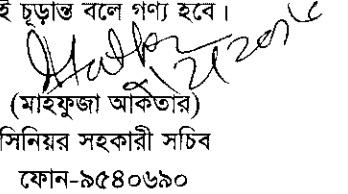 ই চূড়ান্ত বলে গণ্য হবে।
(মাহফুজা আকতার)
সিনিয়র সহকারী সচিব
ফোন-৯৫৪০৬৯০